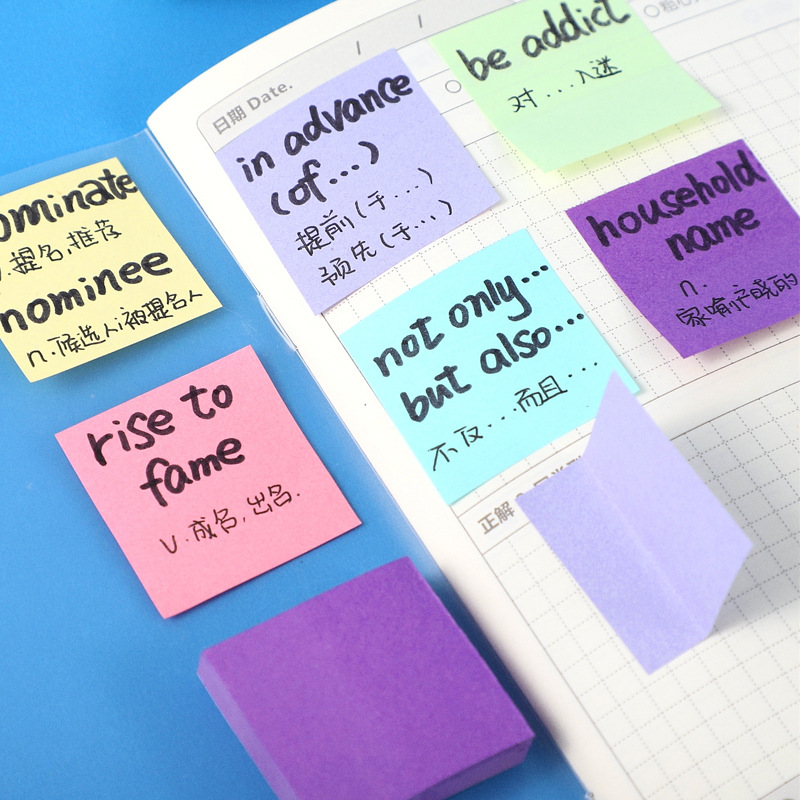 日期 Date.
/ /
be addict
对...入迷
in advance
(of...)
提前(于....)
预先(于....)
household
name
n.
家喻户晓的
ominate
提名,推荐
nominee
n.候选人;被提名人
not only...
but also...
不仅...而且...
rise to
fame
v.成名,出名.
正解